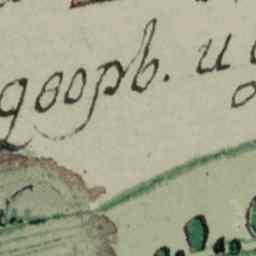 дворъ. и